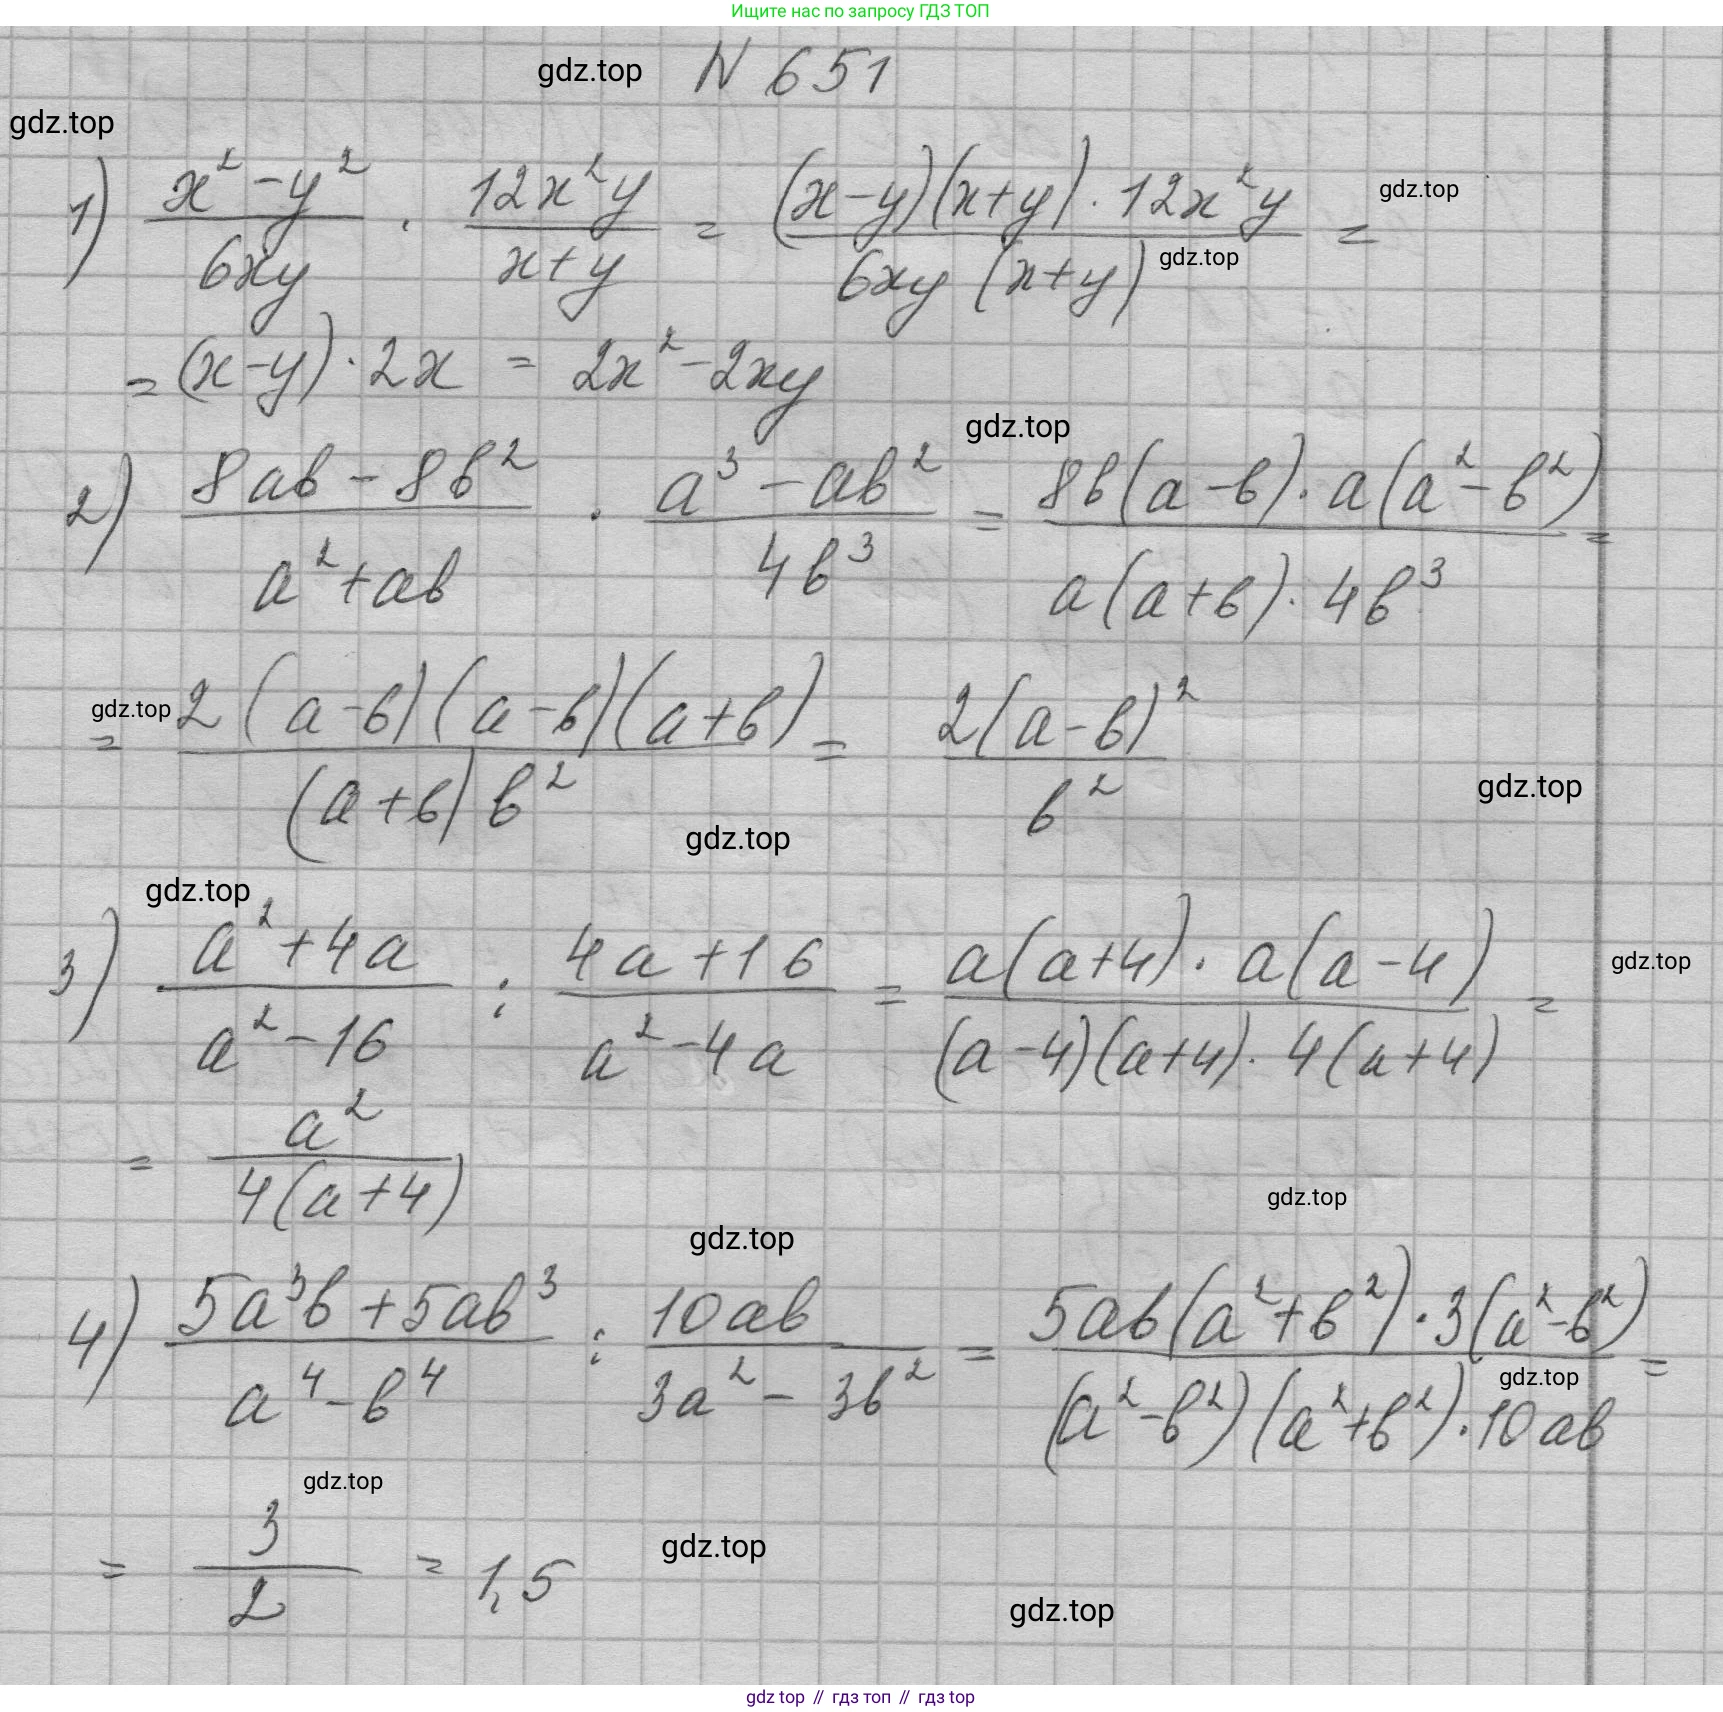 Ищите нас по запросу ГДЗ ТОП
gdz.top N 651
gdz.top
1) (x² - y²)/(6xy) · (12x²y)/(x+y) = ((x-y)(x+y) · 12x²y)/(6xy (x+y)) = gdz.top
gdz.top
= (x-y) · 2x = 2x² - 2xy
gdz.top
2) (8ab - 8b²)/(a² + ab) · (a³ - ab²)/(4b³) = (8b(a-b) · a(a² - b²))/(a(a+b) · 4b³) =
gdz.top
= (2(a-b)(a-b)(a+b))/((a+b)b²) = (2(a-b)²)/(b²)
gdz.top
gdz.top
gdz.top
3) (a² + 4a)/(a² - 16) : (4a + 16)/(a² - 4a) = (a(a+4) · a(a-4))/((a-4)(a+4) · 4(a+4)) =
gdz.top
= (a²)/(4(a+4))
gdz.top
gdz.top
4) (5a³b + 5ab³)/(a⁴ - b⁴) : (10ab)/(3a² - 3b²) = (5ab(a² + b²) · 3(a² - b²))/((a² - b²)(a² + b²) · 10ab) =
gdz.top
gdz.top
= 3/2 = 1,5
gdz.top
gdz.top
gdz top // гдз топ // gdz top